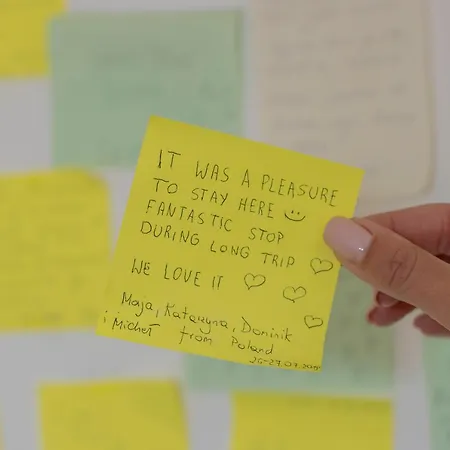 IT WAS A PLEASURE
TO STAY HERE
FANTASTIC STOP
DURING LONG TRIP
WE LOVE IT
Maja, Katarzyna, Dominik
i Michał from Poland